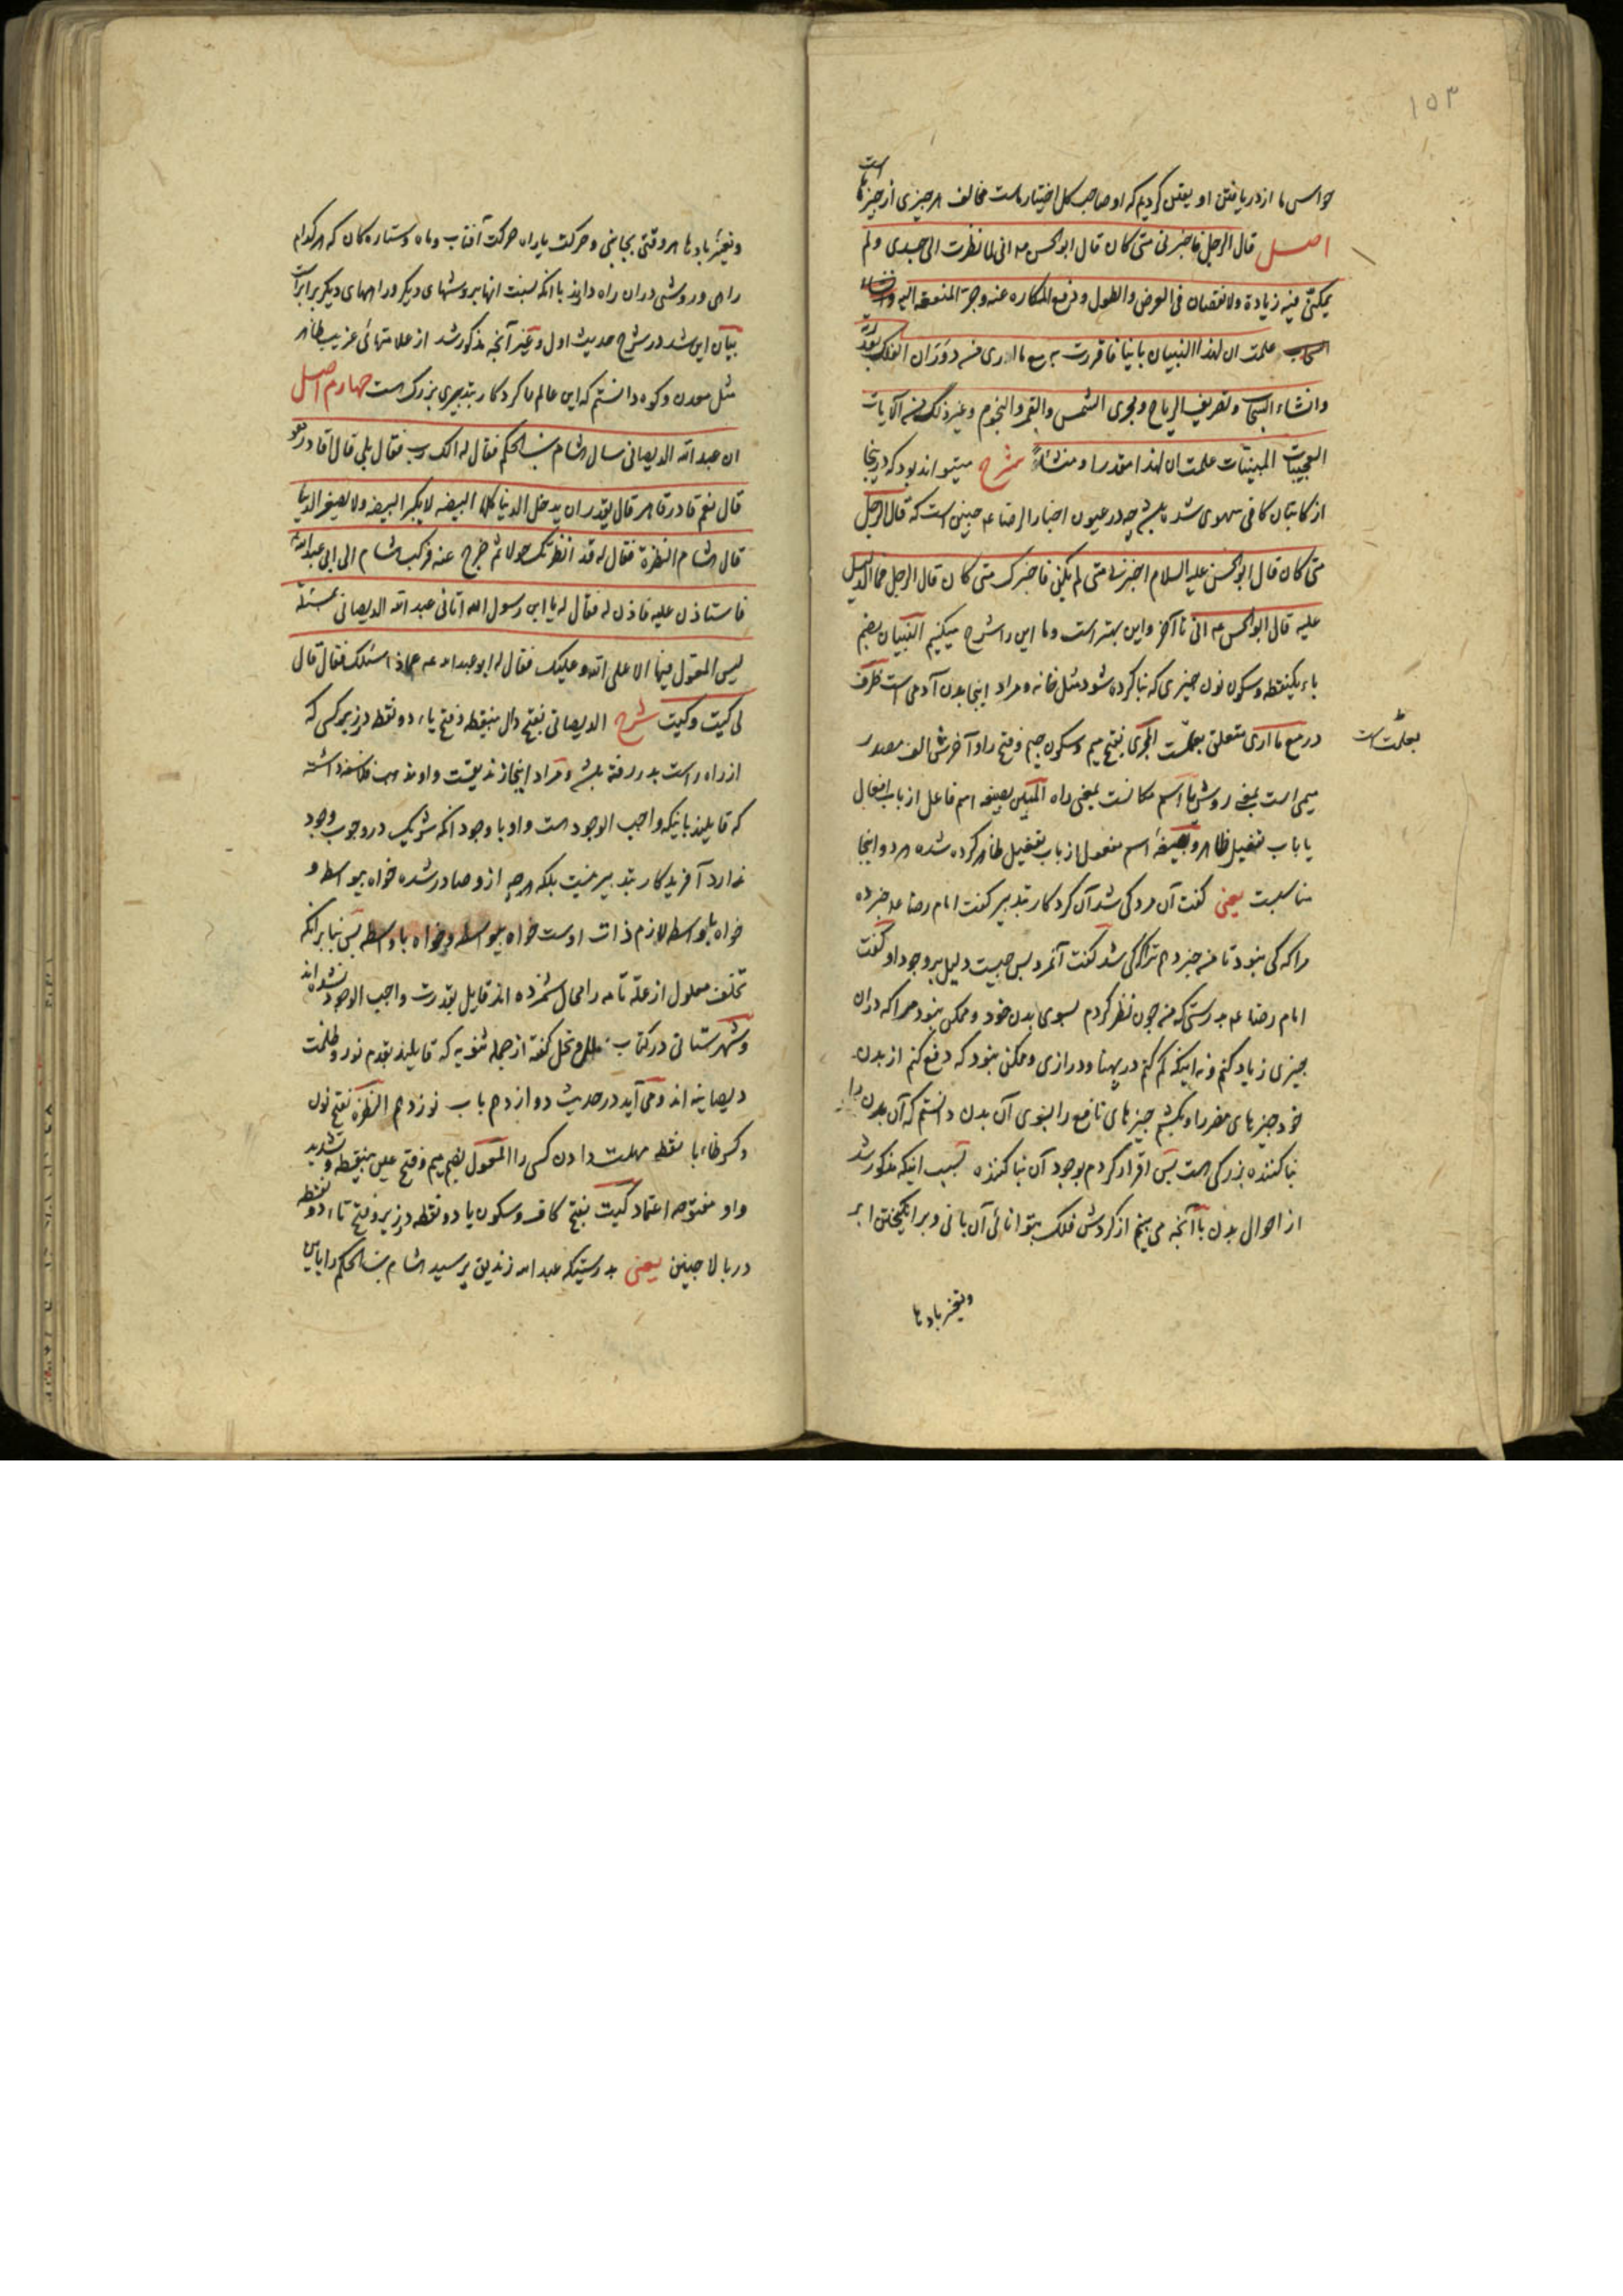 ۱۵۳
حواس ما از دریافتن او یقین کردیم که او صاحب کل اختیار ماست مخالف هر چیزی از چیزها است
اصل قال الرجل فاخبرنی متی کان قال ابو الحسن ع انی لما نظرت الی جسدی ولم
یمکنّی فیه زیادة ولا نقصان فی العرض والطول ودفع المکاره عنه وجرّ المنفعة الیه
علمت ان لهذا البنیان بانیا فاقررت به مع ما اری من دوران الفلک بقدرته
وانشاء السّحاب وتصریف الریاح ومجری الشمس والقمر والنجوم وغیر ذلک من الآیات
العجیبات المبیّنات علمت ان لهذا مقدرا ومنشئاً شرح میتواند بود که درینجا
از کاتبان کافی سهوی شده باشد چه در عیون اخبار الرضا ع چنین است که قال الرجل
متی کان قال ابو الحسن علیه السلام اخبرنی متی لم یکن فاخبرک متی کان قال الرجل فما الدلیل
علیه قال ابو الحسن ع انی تا آخر و این بهتر است و ما این را شرح میکنیم البنیان بضم
باء یکنقطه وسکون نون چیزی که بنا کرده شود مثل خانه و مراد اینجا بدن آدمی است ظرف
در مع ما اری متعلق بعلمت المجری بفتح میم وسکون جیم وفتح را و آخرش الف مصدر
بعلمت است
میمی است بمعنی روش یا اسم مکانست بمعنی راه المبیّن بصیغه اسم فاعل از باب افعال
یا باب تفعیل ظاهر وبصیغهٔ اسم مفعول از باب تفعیل ظاهر کرده شده هر دو اینجا
مناسبت یعنی گفت آن مرد کی شد آن کردکار بتدبیر گفت امام رضا ع خبر ده
مرا که کی نبود تا من خبر دهم ترا که کی شد گفت آنمرد پس چیست دلیل بر وجود او گفت
امام رضا ع بدرستی که من چون نظر کردم بسوی بدن خود و ممکن نبود مرا که در آن
چیزی زیاد کنم و نه اینکه کم کنم در پهنا و درازی و ممکن نبود که دفع کنم از بدن
خود چیزهای مضر را و بکشم چیزهای نافع را بسوی آن بدن دانستم که آن بدن را
بنا کننده بزرگی هست پس اقرار کردم بوجود آن بنا کننده بسبب اینکه مذکور شد
از احوال بدن با آنچه می بینم از کردش فلک بتوانائی آن بانی و برانگیختن ابر
وتغیر بادها
وتغیر بادها هر وقتی بجانبی و حرکت یا راه حرکت آفتاب و ماه و ستاره کان که هر کدام
راهی و روشی در آن راه دارند با آنکه نسبت آنها بروشهای دیگر و راههای دیگر برابر است
بیان این شد در شرح حدیث اول و غیر آنچه مذکور شد از علامتهائی غریب ظاهر
مثل معدن و کوه دانستم که این عالم را کردکار بتدبیری بزرک هست چهارم اصل
ان عبد الله الدیصانی سال هشام بن الحکم فقال له الک رب فقال بلی قال اقادر هو
قال نعم قادر قاهر قال یقدر ان یدخل الدنیا کلها البیضه لا یکبر البیضه ولا یصغر الدنیا
قال هشام النظرة فقال له قد انظرتک حولا ثم خرج عنه فرکب هشام الی ابی عبد الله ع
فاستاذن علیه فاذن له فقال له یا ابن رسول الله اتانی عبد الله الدیصانی بمسئلة
لیس المعوّل فیها الا علی الله وعلیک فقال له ابو عبد الله ع عماذا سئلک فقال قال
لی کیت وکیت شرح الدیصانی بفتح دال بینقطه و فتح یاء دو نقطه در زیر کسی که
از راه راست بدر رفته باشد و مراد اینجا زندیقست و او مذهب فلاسفه داشته
که قایلند باینکه واجب الوجود هست و او با وجود آنکه شریک در وجوب وجود
ندارد آفریدکار بتدبیر نیست بلکه هر چه ازو صادر شده خواه بیواسطه و
خواه باواسطه لازم ذات اوست خواه بیواسطه و خواه باواسطه پس بنا بر آنکه
تخلف معلول از علّة تامه را محال شمرده اند قایل بقدرت واجب الوجود نشده اند
و شهرستانی در کتاب ملل و نحل گفته از جمله ثنویه که قایلند بقدم نور و ظلمت
دیصانیه اند و می آید در حدیث دوازدهم باب نوزدهم النظرة بفتح نون
و کسر ظاء با نقطه مهلت دادن کسی را المعوّل بضم میم و فتح عین بینقطه و تشدید
واو مفتوحه اعتماد کیت بفتح کاف و سکون یاء دو نقطه در زیر و فتح تاء دو نقطه
در بالا چنین یعنی بدرستیکه عبد الله زندیق پرسید هشام بن الحکم را باین